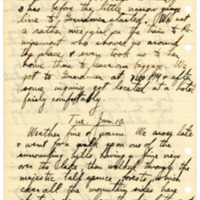 3 hrs before the little narrow gauge
line to Gmunden started. Met
a rather nice girl on the train to
who showed us around
the place & even took us to her
home than to leave our baggage. We
got to Gmunden at PM & after
some inquiry got located at a hotel
fairly comfortably.
Tue. Jun 10.
Weather fine & warm. We arose late
& went for a walk upon one of the
surrounding hills, having a fine view
over the then walked through the
majestic tall spruce forests, which
cover all the mountain sides here